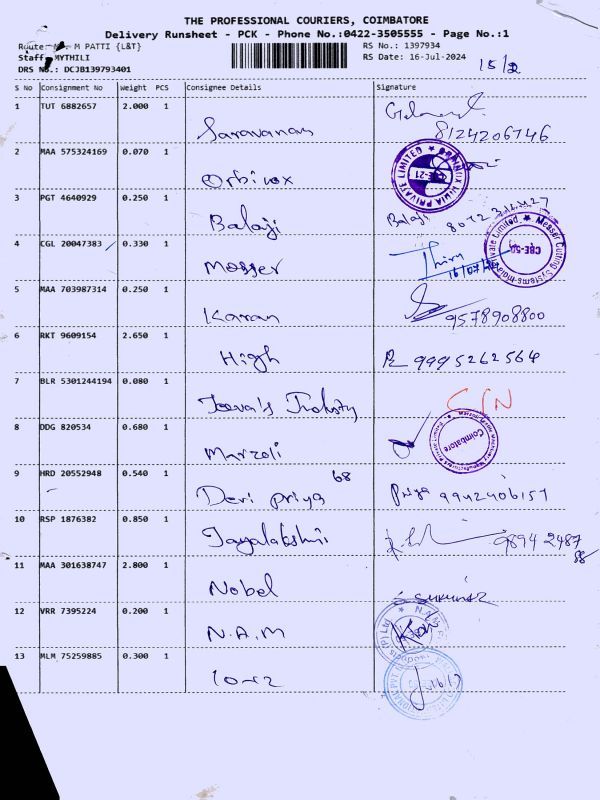 THE PROFESSIONAL COURIERS, COIMBATORE
Delivery Runsheet - PCK - Phone No.:0422-3505555 - Page No.:1
Route: M PATTI {L&T}
RS No.: 1397934
Staff MYTHILI
RS Date: 16-Jul-2024
15/2
DRS No.: DCJB139793401
S No Consignment No Weight PCS Consignee Details Signature
1 TUT 6882657 2.000 1
Saravanan 8124206746
2 MAA 575324169 0.070 1
Orbinox
3 PGT 4640929 0.250 1
Balaji Balaji
4 CGL 20047383 0.330 1
Messer Thiru
5 MAA 703987314 0.250 1
Karan 9578908800
6 RKT 9609154 2.650 1
High 9995262564
7 BLR 5301244194 0.080 1
Jeeva's Industry
8 DDG 820534 0.680 1
Marzoli Coimbatore
9 HRD 20552948 0.540 1
68
Devi priya Priya 9942406157
10 RSP 1876382 0.850 1
Jayalakshmi 9894 2487
88
11 MAA 301638747 2.800 1
Nobel
12 VRR 7395224 0.200 1
N.A.M
13 MLM 75259885 0.300 1